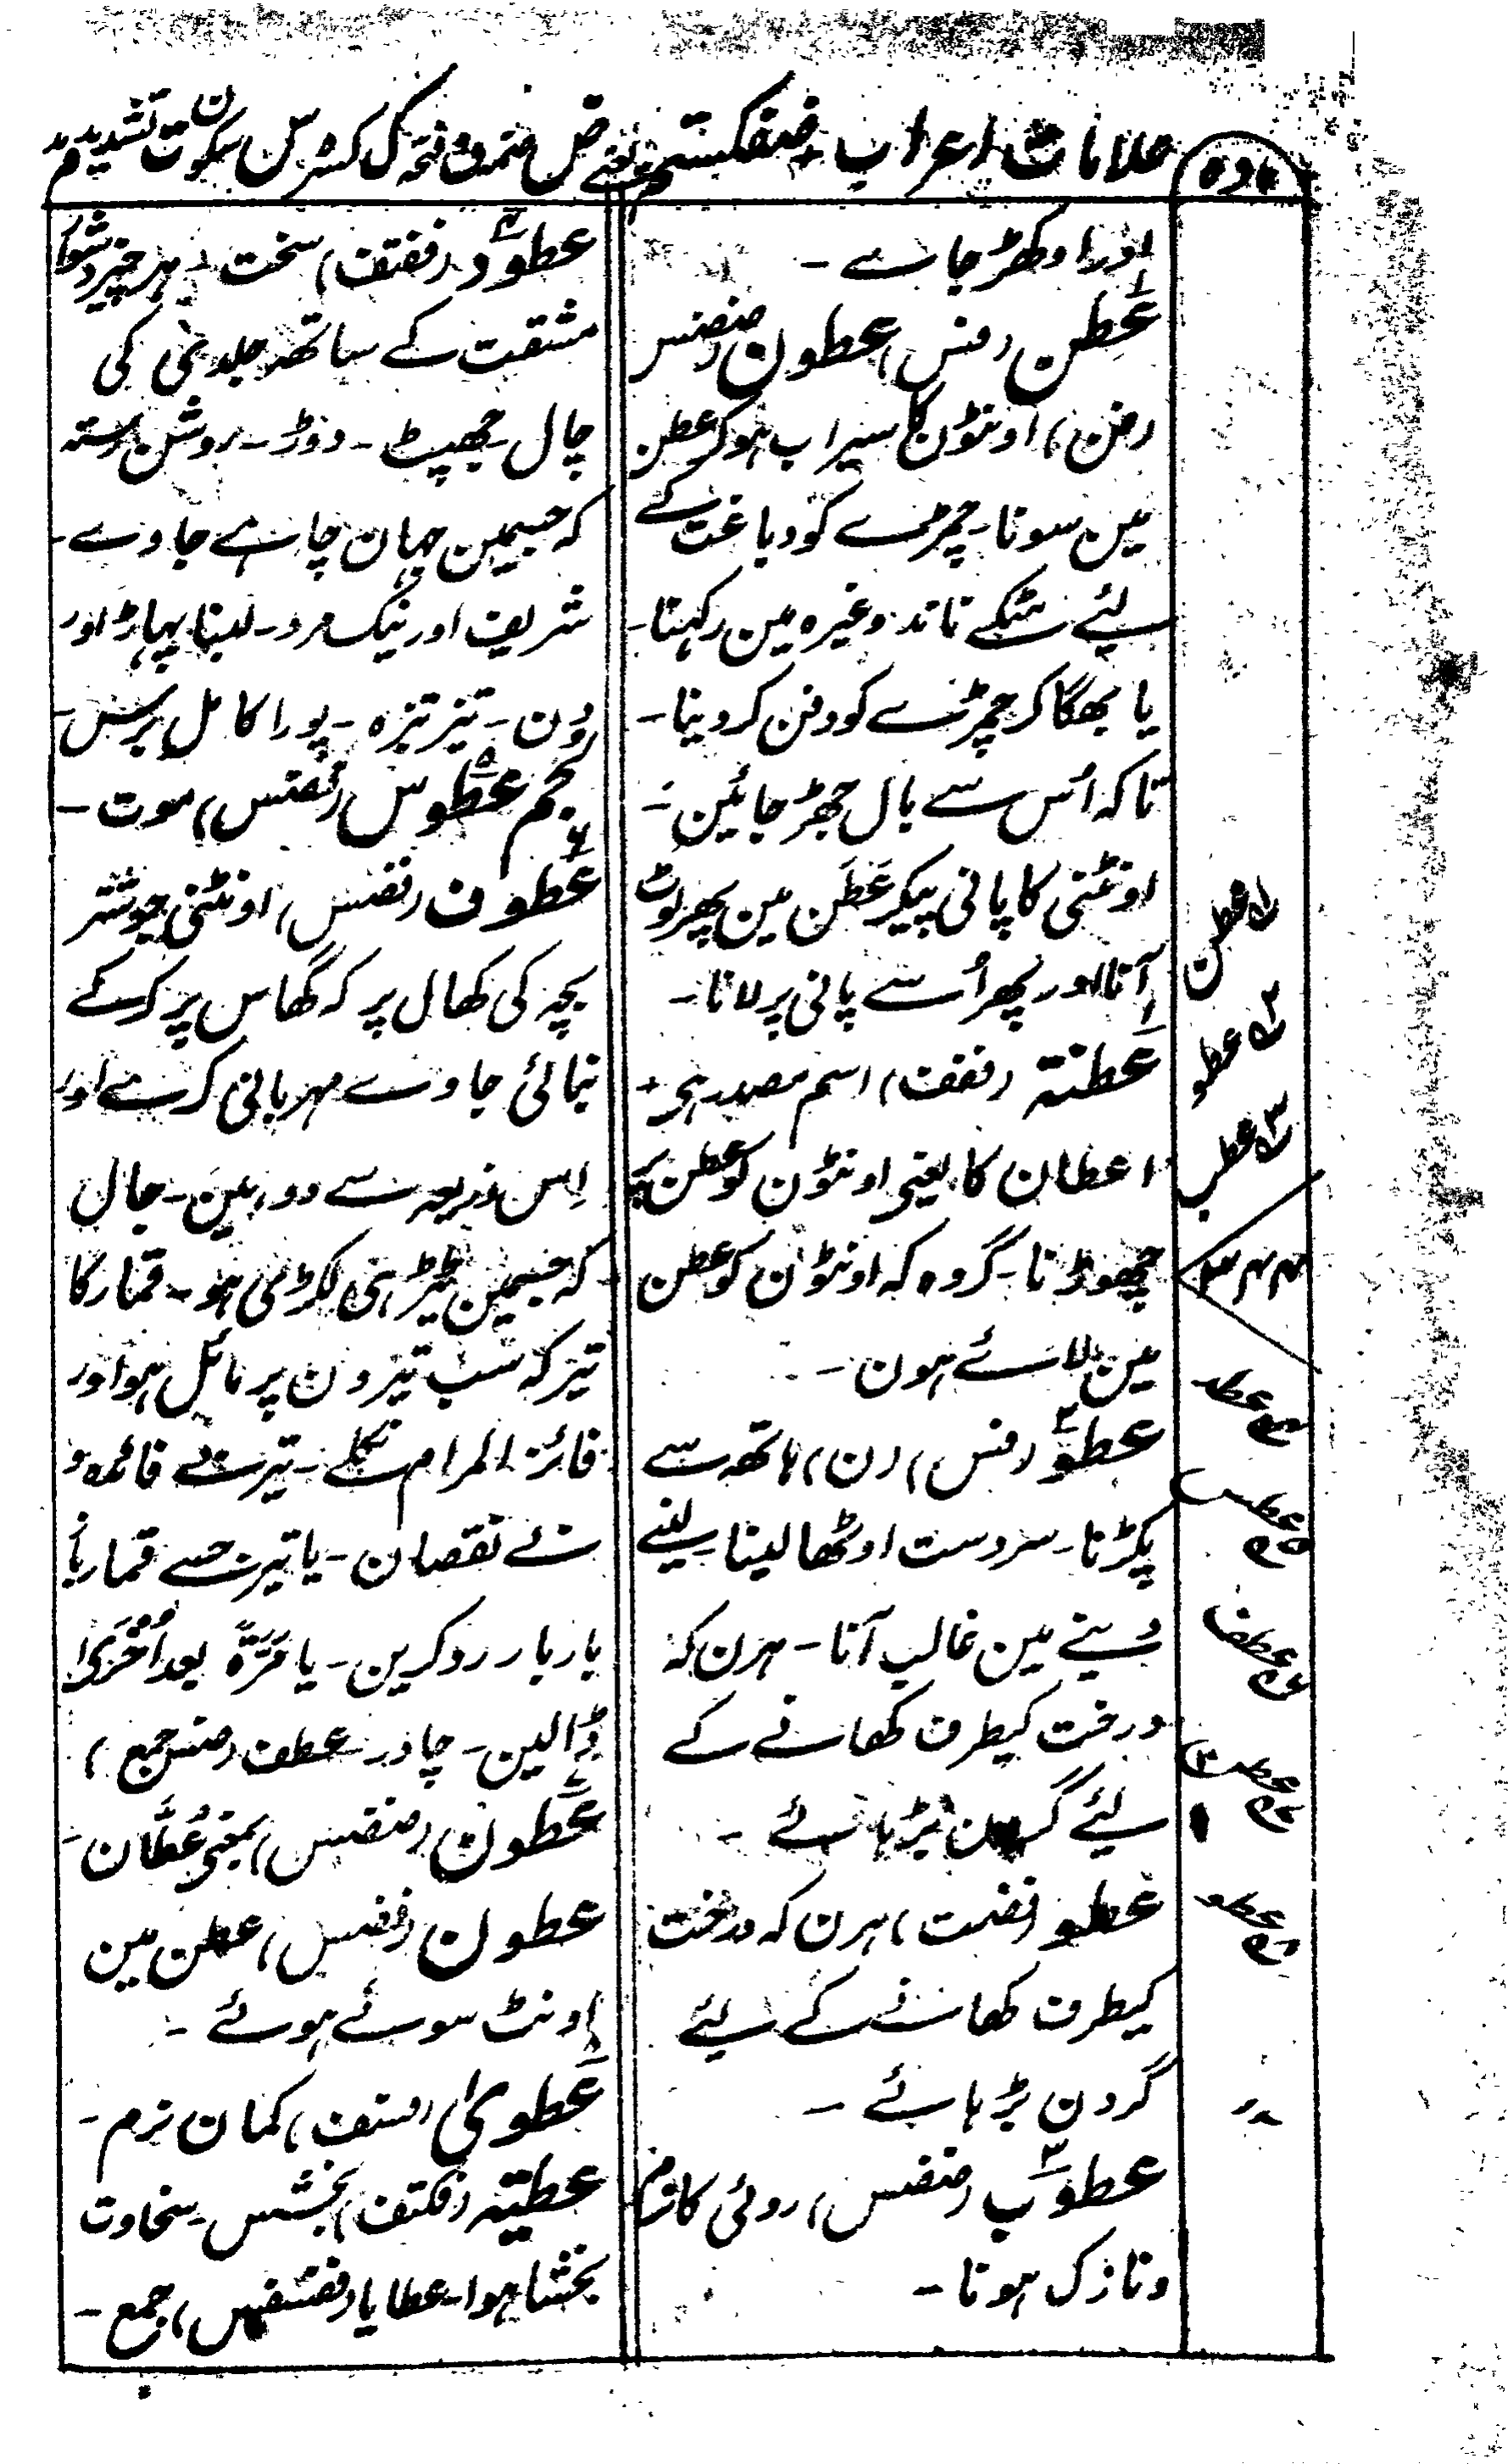 مادہ
علامات اعراب ضفکستم یعنی ض ضمہ ف فتحہ ک کسرہ س سکون ت تشدید م مد
اور اوکھڑ جاے -
عَطن (فس) عطون (ضضس
(ض ن) اونٹون کا سیراب ہو کر عطن
مین سونا - چمڑے کو دباغت کے
لئے مٹکے ناند وغیرہ مین رکہنا -
یا بھگا کر چمڑے کو دفن کر دینا -
تا کہ اُس سے بال جھڑ جائین -
اونٹنی کا پانی پیکر عَطَن مین پھر لوٹ
آنا اور پھر اُسے پانی پر لانا -
عَطنۃ (ففف) اسم مصدر ہی -
اعطان کا یعنی اونٹون کو عطن پر
چھوڑنا - گروہ کہ اونٹون کو عطن
مین لائے ہون -
عطوٌ (فس) (ن) ہاتھ سے
پکڑنا - سردست اوٹھا لینا - لینے
دینے مین غالب آنا - ہرن کہ
درخت کیطرف کھانے کے
لئے گردن بڑہائے -
عطو (فضت) ہرن کہ درخت
کیطرف کھانے کے لئے
گردن بڑہائے -
عطوب (ضضس) روئی کا نرم
و نازک ہونا -
عطوّد (ففتف) سخت - ہر چیز دشوار
مشقت کے ساتھ جلدی کی
چال - جھپٹ - دوڑ - روشن رستہ
کہ جسمین جہان چاہے جاوے -
شریف اور نیک مرد - لمبا پہاڑ اور
دن - تیز نیزہ - پورا کامل برس -
عطوس (فضس) موت -
عَطوف (فضس) اونٹنی جو شتر
بچہ کی کھال پر کہ گھاس پر کر کے
بنائی جاوے مہربانی کرے اور
اِس ذریعہ سے دوہین - جال
کہ جسمین ٹیڑہی لکڑی ہو - قمار کا
تیر کہ سب تیرون پر مائل ہو اور
فائز المرام نکلے - تیر بے فائدہ و
بے نقصان - یا تیر جسے قمار باز
بار بار رد کرین - یا مَرَّۃً بعد اُخْرٰی
ڈالین - چادر - عطف (ضس جمع)
عطون (ضضس) بمعنی عُطَّان -
عطون (فضس) عطن مین
اونٹ سوئے ہوئے -
عَطویٰ (فستف) کمان نرم -
عطیّہ (فکتف) بخشش - سخاوت
بخشا ہوا - عطایا (ففسفس) جمع -
۱ عطن
۲ عطو
۳ عطب
۴ عطد
۵ عطس
۶ عطف
۷ عطن
۸ عطو